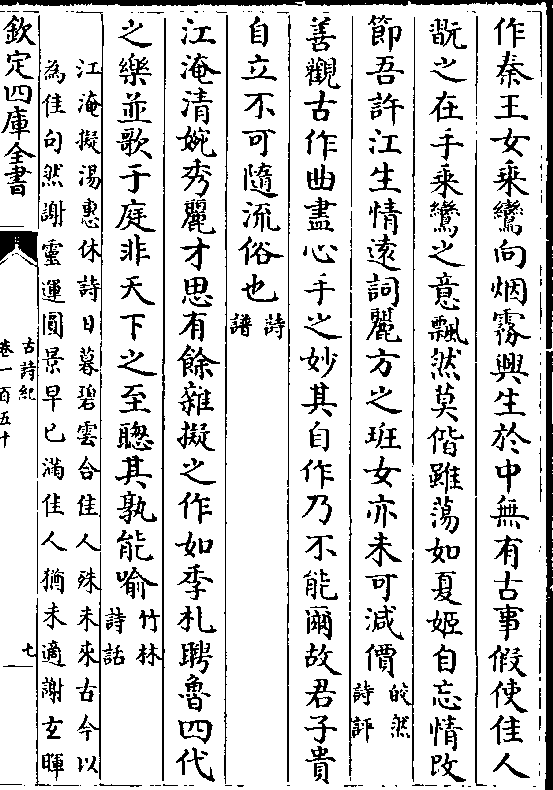 作秦王女乘鸞向烟霧興生於中無有古事假使佳人
翫之在手乘鸞之意飄然莫偕雖蕩如夏姬自忘情改
節吾許江生情遠詞麗方之班女亦未可減價皎然
詩評
善觀古作曲盡心手之妙其自作乃不能爾故君子貴
自立不可隨流俗也詩
譜
江淹清婉秀麗才思有餘雜擬之作如季札聘魯四代
之樂並歌于庭非天下之至聰其孰能喻竹林
詩話
江淹擬湯惠休詩日暮碧雲合佳人殊未來古今以
為佳句然謝靈運圓景早已滿佳人猶未適謝玄暉
欽定四庫全書
古詩紀
卷一百五十
七